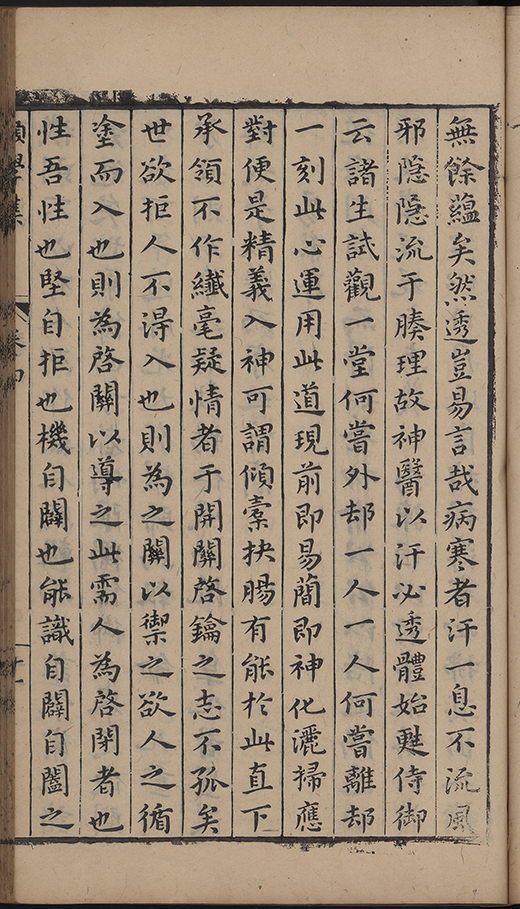 無餘蘊矣然透豈易言哉病寒者汗一息不流風
邪隐隱流于腠理故神醫以汗必透體始甦侍御
云諸生試觀一堂何嘗外却一人一人何嘗離却
一刻此心運用此道現前即易蕳即神化灑掃應
對便是精義入神可謂傾橐抉腸有能於此直下
承領不作纖毫疑情者于開關啓鑰之志不孤矣
世欲拒人不淂入也則為之關以禦之欲人之循
塗而入也則為啓關以導之此需人為啓閉者也
性吾性也堅自拒也機自闢也能識自闢自闔之
學集 卷四